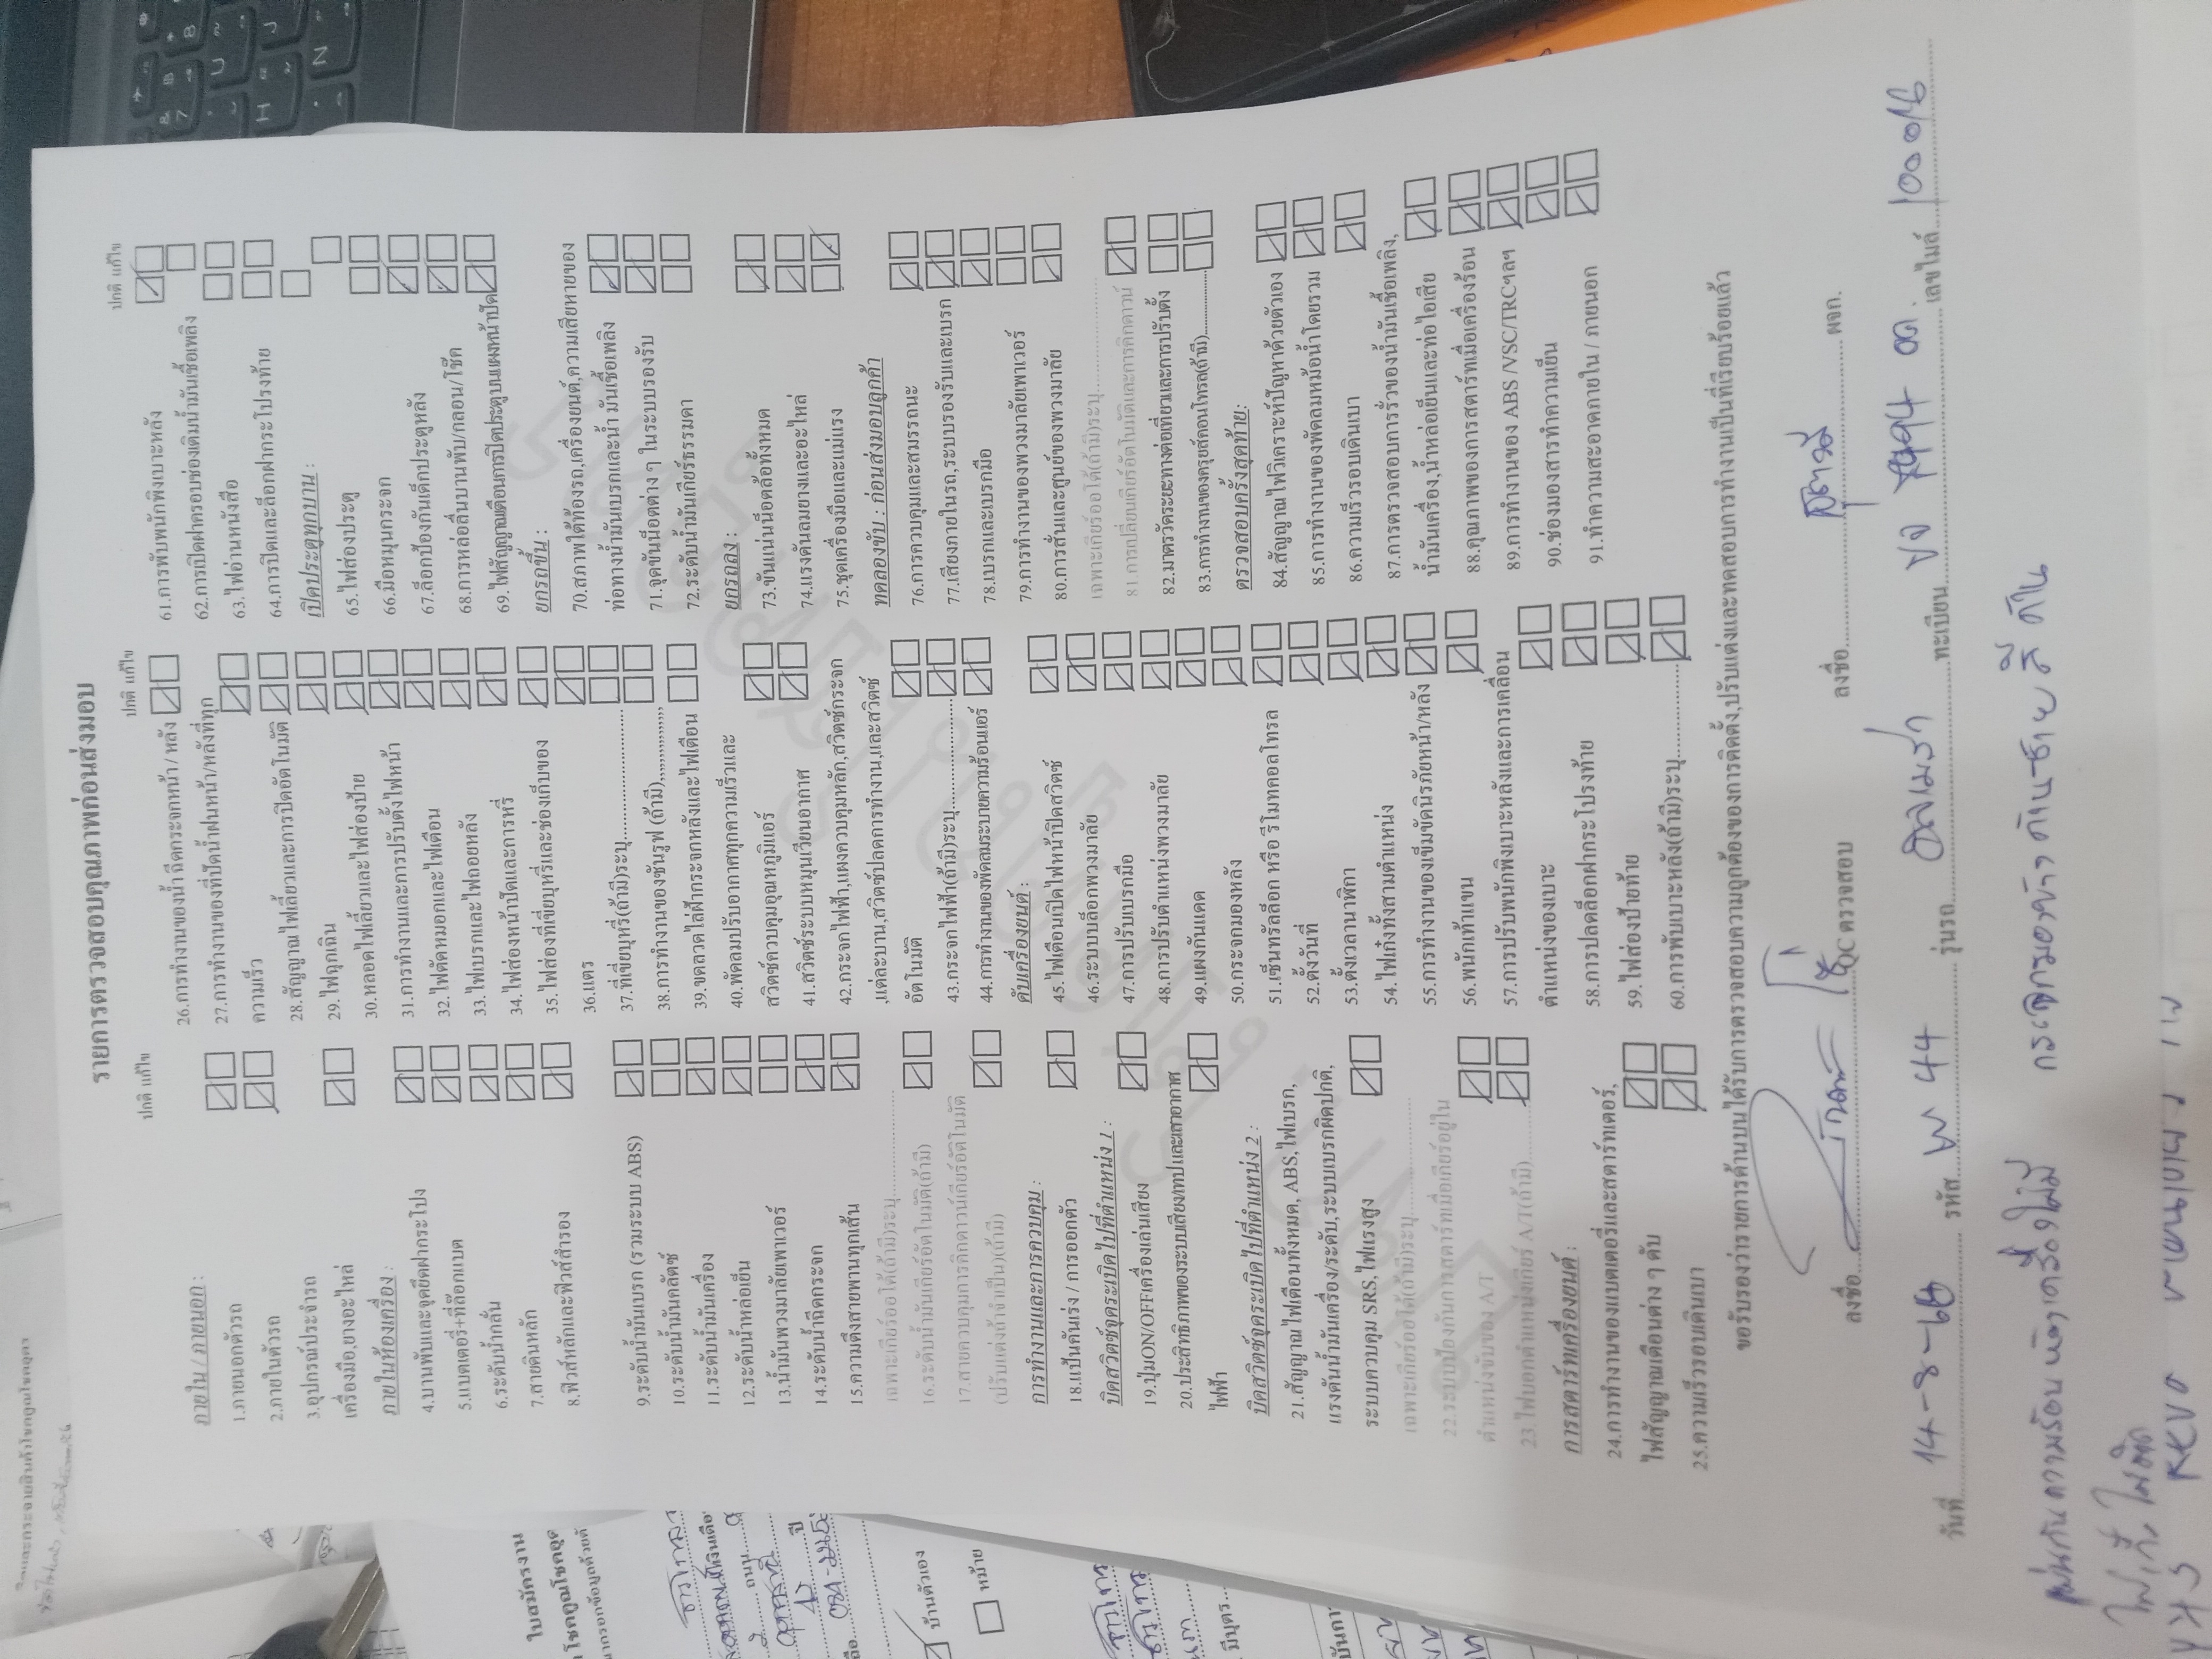 รายการตรวจสอบคุณภาพก่อนส่งมอบ
ปกติ แก้ไข
ภายใน / ภายนอก :
1.ภายนอกตัวรถ
2.ภายในตัวรถ
3.อุปกรณ์ประจำรถ
เครื่องมือ,ยางอะไหล่
ภายในห้องเครื่อง :
4.บานพับและจุดยึดฝากระโปง
5.แบตเตอรี่+ที่ล๊อกแบต
6.ระดับน้ำกลั่น
7.สายดินหลัก
8.ฟิวส์หลักและฟิวส์สำรอง
9.ระดับน้ำมันเบรก (รวมระบบ ABS)
10.ระดับน้ำมันคลัตซ์
11.ระดับน้ำมันเครื่อง
12.ระดับน้ำหล่อเย็น
13.น้ำมันพวงมาลัยเพาเวอร์
14.ระดับน้ำฉีดกระจก
15.ความตึงสายพานทุกเส้น
เฉพาะเกียร์ออโต้(ถ้ามี)ระบุ
16.ระดับน้ำมันเกียร์อัตโนมัติ(ถ้ามี)
17.สายควบคุมการคิกดาวน์เกียร์อัติโนมัติ
(ปรับแต่งถ้าจำเป็น)(ถ้ามี)
การทำงานและการควบคุม :
18.แป้นคันเร่ง / การออกตัว
บิดสวิตซ์จุดระเบิดไปที่ตำแหน่ง 1 :
19.ปุ่มON/OFFเครื่องเล่นเสียง
20.ประสิทธิภาพของระบบเสียง/เทปและเสาอากาศ
ไฟฟ้า
บิดสวิตซ์จุดระเบิดไปที่ตำแหน่ง 2 :
21.สัญญาณไฟเตือนทั้งหมด, ABS,ไฟเบรก,
แรงดันน้ำมันเครื่อง/ระดับ,ระบบเบรกผิดปกติ,
ระบบควบคุม SRS,ไฟแรงสูง
เฉพาะเกียร์ออโต้(ถ้ามี)ระบุ
22.ระบบป้องกันการสตาร์ทเมื่อเกียร์อยู่ใน
ตำแหน่งขับของ A/T
23.ไฟบอกตำแหน่งเกียร์ A/T(ถ้ามี)
การสตาร์ทเครื่องยนต์ :
24.การทำงานของแบตเตอรี่และสตาร์ทเตอร์,
ไฟสัญญาณเตือนต่าง ๆ ดับ
25.ความเร็วรอบเดินเบา
ปกติ แก้ไข
26.การทำงานของน้ำฉีดกระจกหน้า / หลัง
27.การทำงานของที่ปัดน้ำฝนหน้า/หลังที่ทุก
ความเร็ว
28.สัญญาณไฟเลี้ยวและการปิดอัตโนมัติ
29.ไฟฉุกเฉิน
30.หลอดไฟเลี้ยวและไฟส่องป้าย
31.การทำงานและการปรับตั้งไฟหน้า
32.ไฟตัดหมอกและไฟเตือน
33.ไฟเบรกและไฟถอยหลัง
34.ไฟส่องหน้าปัดและการหรี่
35.ไฟส่องที่เขี่ยบุหรี่และช่องเก็บของ
36.แตร
37.ที่เขี่ยบุหรี่(ถ้ามี)ระบุ
38.การทำงานของซันรูฟ (ถ้ามี)
39.ขดลวดไล่ฝ้ากระจกหลังและไฟเตือน
40.พัดลมปรับอากาศทุกความเร็วและ
สวิตซ์ควบคุมอุณหภูมิแอร์
41.สวิตซ์ระบบหมุนเวียนอากาศ
42.กระจกไฟฟ้า,แผงควบคุมหลัก,สวิตซ์กระจก
,แต่ละบาน,สวิตซ์ปลดการทำงาน,และสวิตซ์
อัตโนมัติ
43.กระจกไฟฟ้า(ถ้ามี)ระบุ
44.การทำงานของพัดลมระบายความร้อนแอร์
ดับเครื่องยนต์ :
45.ไฟเตือนเปิดไฟหน้าปิดสวิตซ์
46.ระบบบล็อกพวงมาลัย
47.การปรับเบรกมือ
48.การปรับตำแหน่งพวงมาลัย
49.แผงกันแดด
50.กระจกมองหลัง
51.เซ็นทรัลล็อก หรือ รีโมทคอลโทรล
52.ตั้งวันที่
53.ตั้งเวลานาฬิกา
54.ไฟเก๋งทั้งสามตำแหน่ง
55.การทำงานของเข็มขัดนิรภัยหน้า/หลัง
56.พนักเท้าแขน
57.การปรับพนักพิงเบาะหลังและการเคลื่อน
ตำแหน่งของเบาะ
58.การปลดล็อกฝากระโปรงท้าย
59.ไฟส่องป้ายท้าย
60.การพับเบาะหลัง(ถ้ามี)ระบุ
ปกติ แก้ไข
61.การพับพนักพิงเบาะหลัง
62.การเปิดฝาครอบช่องเติมน้ำมันเชื้อเพลิง
63.ไฟอ่านหนังสือ
64.การปิดและล็อกฝากระโปรงท้าย
เปิดประตูทุกบาน :
65.ไฟส่องประตู
66.มือหมุนกระจก
67.ล็อกป้องกันเด็กประตูหลัง
68.การหล่อลื่นบานพับ/กลอน/โช๊ค
69.ไฟสัญญาณเตือนการปิดประตูบนแผงหน้าปัด
ยกรถขึ้น :
70.สภาพใต้ท้องรถ,เครื่องยนต์,ความเสียหายของ
ท่อทางน้ำมันเบรกและน้ำ มันเชื้อเพลิง
71.จุดขันน็อตต่าง ๆ ในระบบรองรับ
72.ระดับน้ำมันเกียร์ธรรมดา
ยกรถลง :
73.ขันแน่นน็อตล้อทั้งหมด
74.แรงดันลมยางและอะไหล่
75.ชุดเครื่องมือและแม่แรง
ทดลองขับ : ก่อนส่งมอบลูกค้า
76.การควบคุมและสมรรถนะ
77.เสียงภายในรถ,ระบบรองรับและเบรก
78.เบรกและเบรกมือ
79.การทำงานของพวงมาลัยเพาเวอร์
80.การสั่นและศูนย์ของพวงมาลัย
เฉพาะเกียร์ออโต้(ถ้ามี)ระบุ
81.การเปลี่ยนเกียร์อัตโนมัติและการคิกดาวน์
82.มาตรวัดระยะทางต่อเที่ยวและการปรับตั้ง
83.การทำงานของครุยส์คอนโทรล(ถ้ามี)
ตรวจสอบครั้งสุดท้าย:
84.สัญญาณไฟวิเคราะห์ปัญหาด้วยตัวเอง
85.การทำงานของพัดลมหม้อน้ำโดยรวม
86.ความเร็วรอบเดินเบา
87.การตรวจสอบการรั่วของน้ำมันเชื้อเพลิง,
น้ำมันเครื่อง,น้ำหล่อเย็นและท่อไอเสีย
88.คุณภาพของการสตาร์ทเมื่อเครื่องร้อน
89.การทำงานของ ABS /VSC/TRCฯลฯ
90.ช่องมองสารทำความเย็น
91.ทำความสะอาดภายใน / ภายนอก
ขอรับรองว่ารายการด้านบนได้รับการตรวจสอบความถูกต้องของการติดตั้ง,ปรับแต่งและทดสอบการทำงานเป็นที่เรียบร้อยแล้ว
ลงชื่อ QC ตรวจสอบ
ลงชื่อ ผจก.
วันที่ 14-8-68 รหัส W 44 รุ่นรถ ทะเบียน เลขไมล์
แผ่นกันความร้อน ฝาเครื่องไม่มี กระจกมองข้างด้านซ้าย
REVO
ใบสมัครงาน
บ้านตัวเอง
หม้าย
มีบุตร